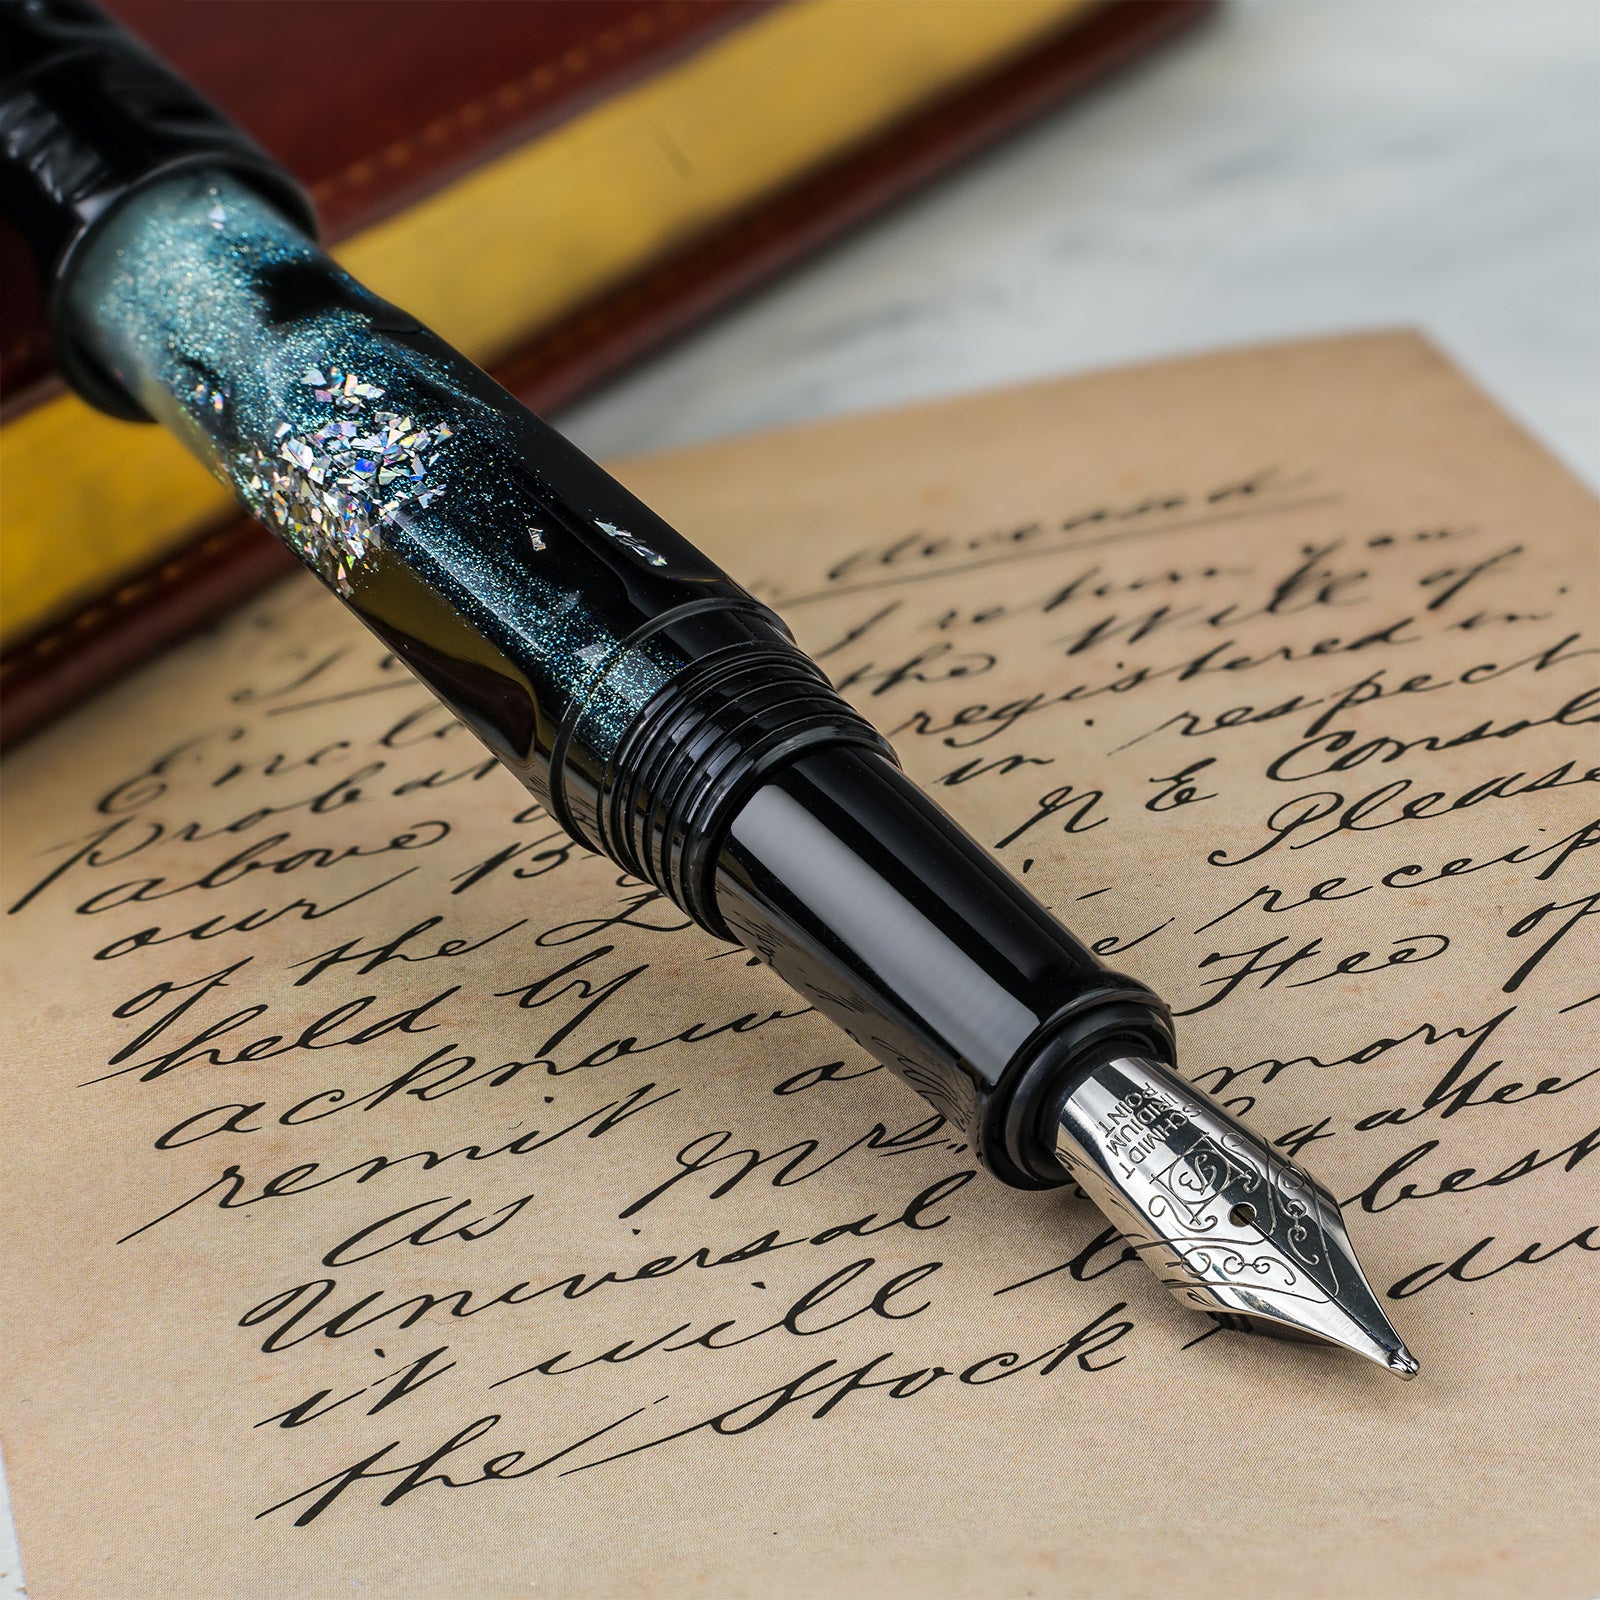 deceased
I return you
Encl the Will of
probat registered in
above in respect
our B N E Consols
of the Please
held by receip
acknow Fee of
remit a
as Mrs. mory
Universal
it will b best
the Stock du
SCHMIDT
IRIDIUM
POINT